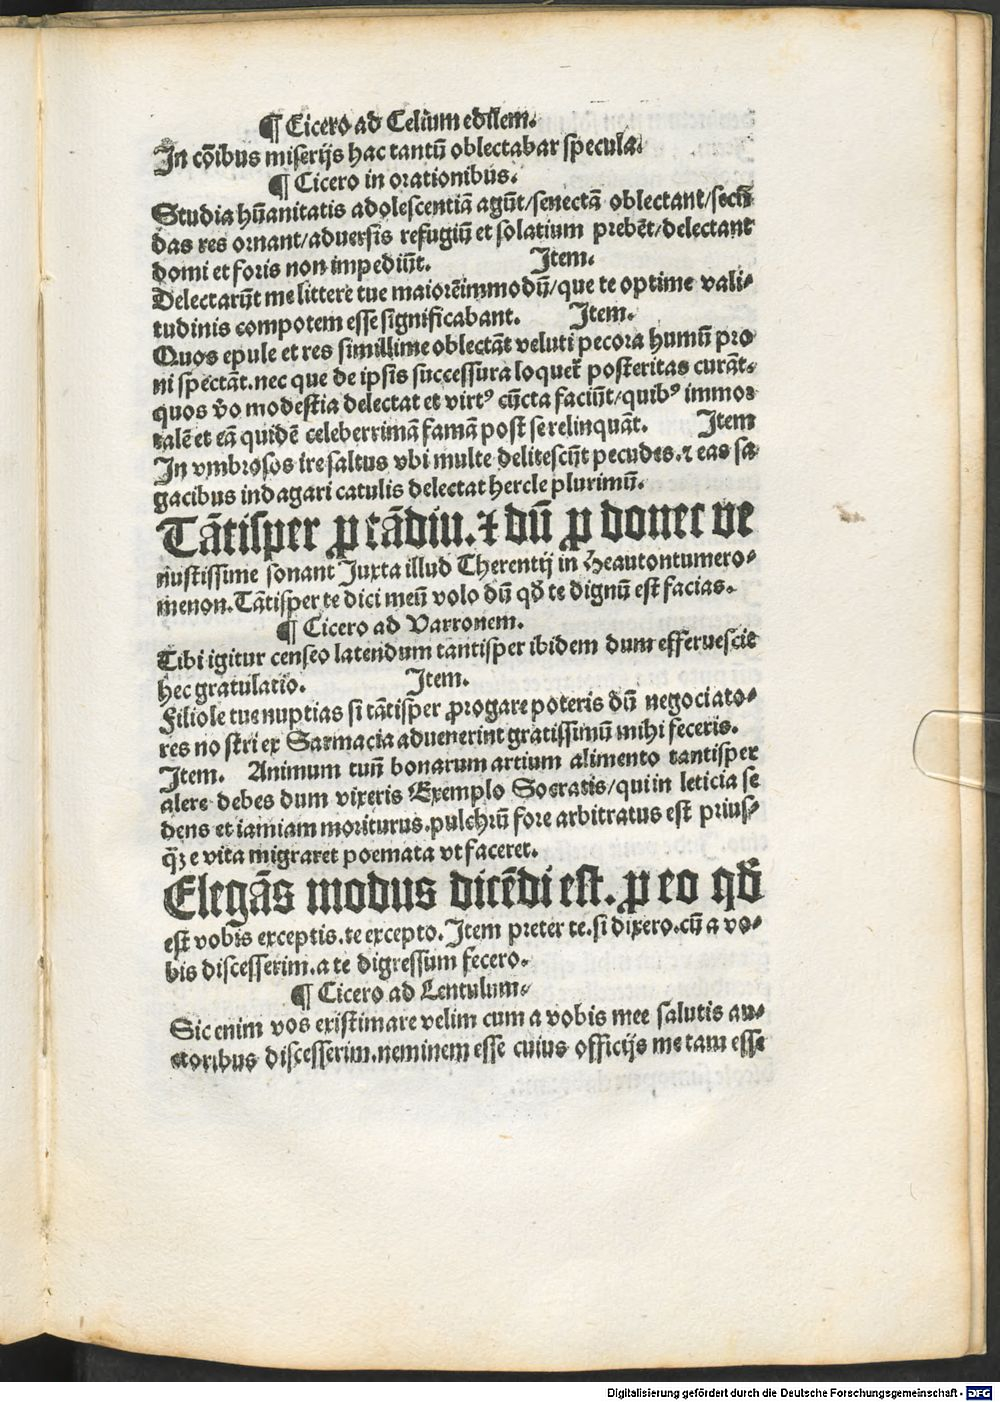 ¶ Cicero ad Celium edilem.
In cōibus miserijs hac tantū oblectabar specula.
¶ Cicero in orationibus.
Studia hūanitatis adolescentiā agūt/senectā oblectant/secū
das res ornant/aduersis refugiū et solatium prebēt/delectant
domi et foris non impediūt. Item.
Delectarūt me littere tue maiorēimmodū/que te optime vali-
tudinis compotem esse significabant. Item.
Quos epule et res simillime oblectāt veluti pecora humū pro
ni spectāt.nec que de ipsis successura loquet̄ posteritas curāt.
quos v̄o modestia delectat et virtꝰ cūcta faciūt/quibꝰ immor
talē et eā quidē celeberrimā famā post se relinquāt. Item
In vmbrosos ire saltus vbi multe delitescūt pecudes.⁊ eas sa
gacibus indagari catulis delectat hercle plurimū.
Tātisper ꝓ tādiu.⁊ dū ꝓ donec ve
nustissime sonant Juxta illud Therentij in Heautontumero-
menon.Tātisper te dici meū volo dū qd̄ te dignū est facias.
¶ Cicero ad Varronem.
Tibi igitur censeo latendum tantisper ibidem dum efferuescit
hec gratulatio. Item.
Filiole tue nuptias si tātisper ꝓrogare poteris dū negociato-
res no stri ex Sarmacia aduenerint gratissimū mihi feceris.
Item. Animum tuū bonarum artium alimento tantisper
alere debes dum vixeris Exemplo Socratis/qui in leticia se
dens et iamiam moriturus.pulchrū fore arbitratus est prius-
q̄ꝫ e vita migraret poemata vt faceret.
Elegās modus dicēdi est. ꝓ eo qd̄
est vobis exceptis.te excepto.Item preter te.si dixero.cū a vo-
bis discesserim.a te digressum fecero.
¶ Cicero ad Lentulum.
Sic enim vos existimare velim cum a vobis mee salutis au-
ctoribus discesserim.neminem esse cuius officijs me tam esse
Digitalisierung gefördert durch die Deutsche Forschungsgemeinschaft - DFG